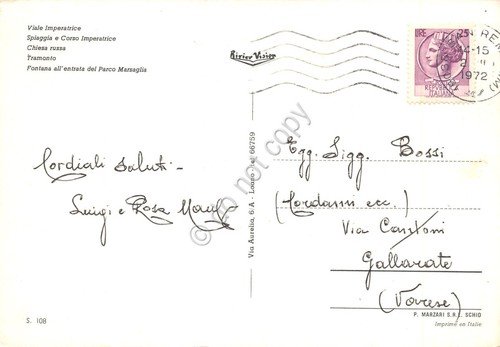 Viale Imperatrice
Spiaggia e Corso Imperatrice
Chiesa russa
Tramonto
Fontana all'entrata del Parco Marsaglia
Rivier Vision
LIRE 25
REPUBBLICA
ITALIANA
14-15
1972
Cordiali saluti -
Luigi e Rosa
do not copy
Via Aurelia, 6.A - Loano - Tel 66759
Egg. Sigg. Bossi
(Cordanni ecc.)
Via Cantoni
Gallarate
(Varese)
S. 108
P. MARZARI S.R.L. SCHIO
Imprimé en Italie